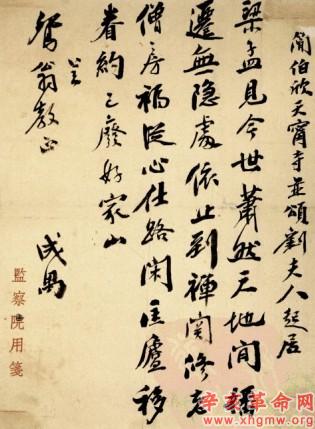 簡伯欣天甯寺並頌劉夫人起居
梁孟見今世蕭然天地間播
遷無隱處依止到禪關修志
僧房福從心仕路閑匡廬移
眷約已廢好家山
鴛翁教正
成禺
監察院用箋
辛亥革命网
www.xhgmw.org